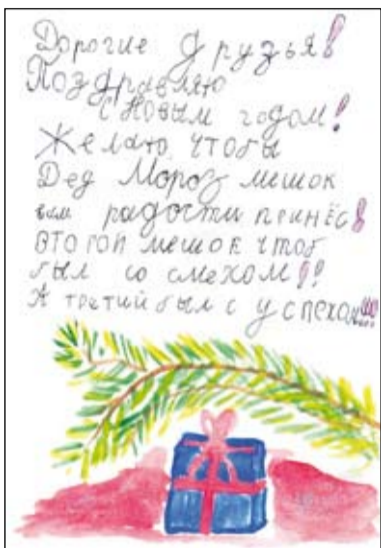 Дорогие друзья!
Поздравляю
с Новым годом!
Желаю, чтобы
Дед Мороз мешок
вам радости принёс!
Второй мешок чтоб
был со смехом!!
А третий был с успехом!!!